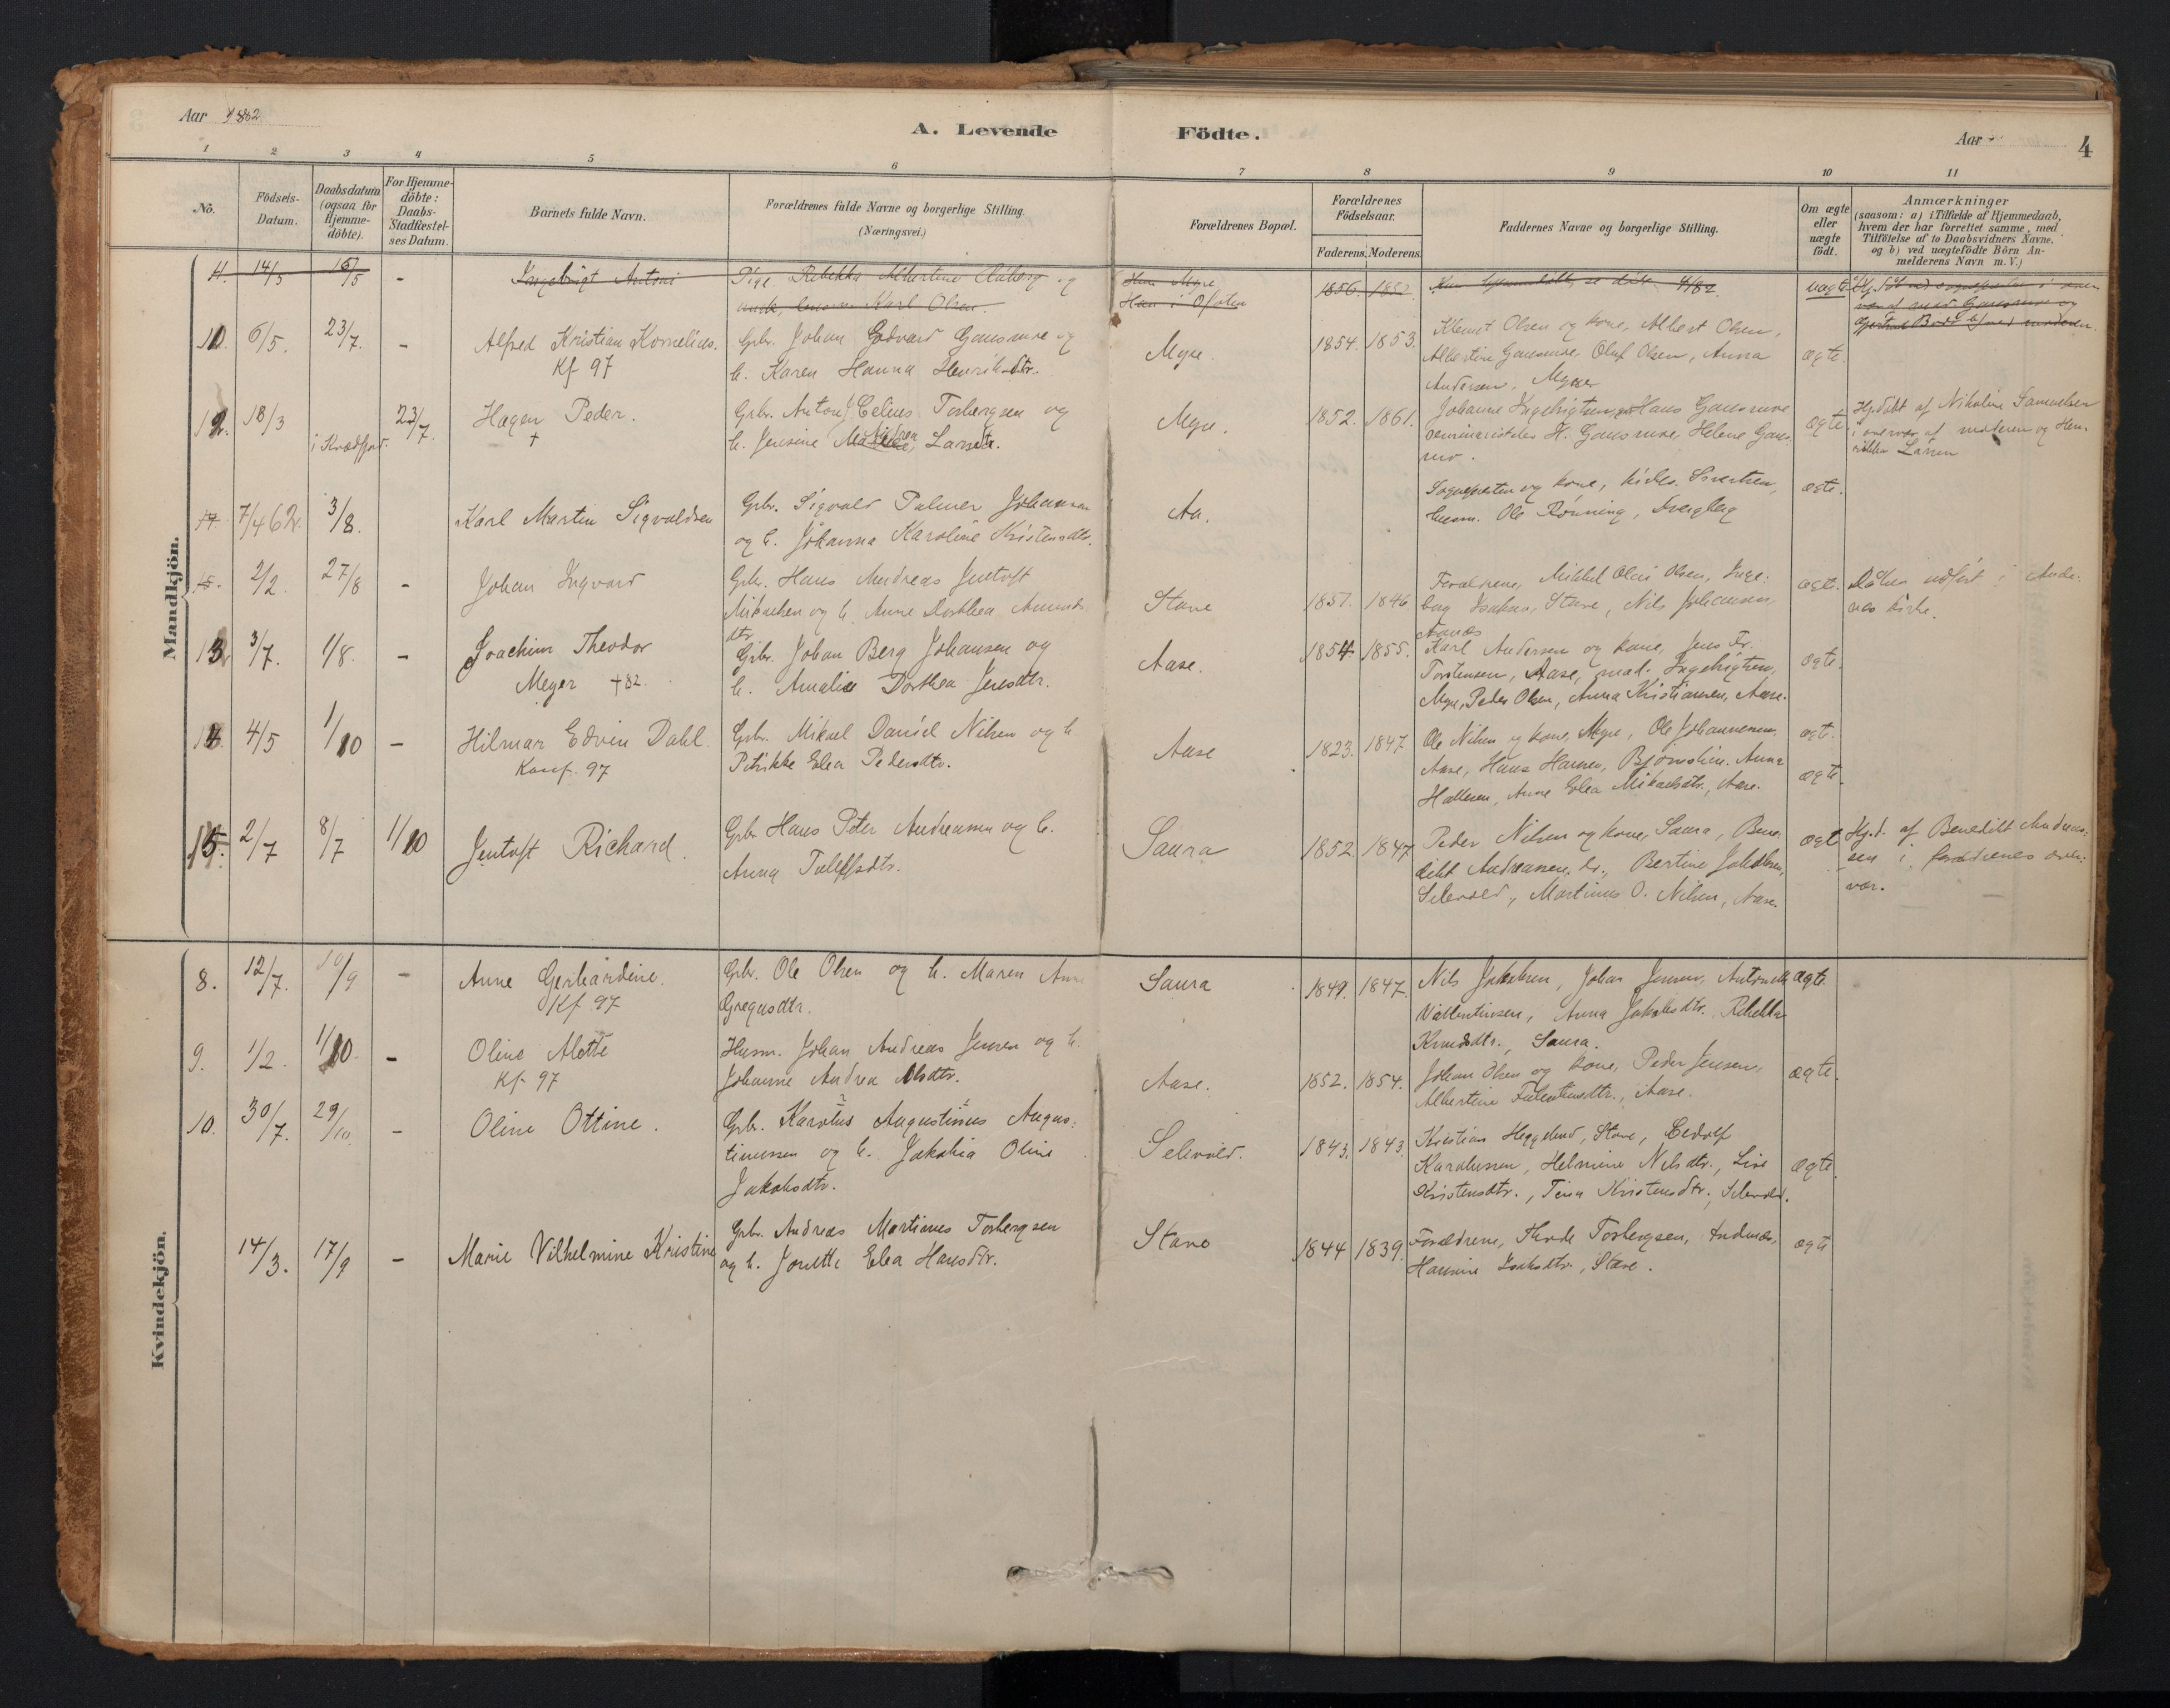 Aar 1882
A. Levende
Födte.
Aar
4
1 2 3 4 5 6 7 8 9 10 11
No.
Födsels-
Datum.
Daabsdatum
(ogsaa for
Hjemme-
döbte).
For Hjemme-
döbte:
Daabs-
Stadfæstel-
ses Datum.
Barnets fulde Navn.
Forældrenes fulde Navne og borgerlige Stilling.
(Næringsvei.)
Forældrenes Bopæl.
Forældrenes
Födselsaar.
Faderens. Moderens.
Faddernes Navne og borgerlige Stilling.
Om ægte
eller
uægte
födt.
Anmærkninger
(saasom: a) i Tilfælde af Hjemmedaab,
hvem der har forrettet samme, med
Tilföielse af to Daabsvidners Navne.
og b) ved uægtefödte Börn An-
melderens Navn m. V.)
Mandkjön.
11. 14/3 16/5 - Ingebrigt Antoni Pige Rebekka Albertine Aaberg og Hun Myre 1856. 1852 4/82. uægte
Karl Olsen Han i Ofoten
10. 6/5. 23/7. - Alfred Kristian Kornelius. Gbr. Johan Edvard Gausmoe og Myre. 1854. 1853. Klemet Olsen og kone, Albert Olsen, ægte.
Kf 97 h. Karen Hanna Henriksdtr. Albertine Gausmoe, Oluf Olsen, Anna
Andersen, Myre
12. 18/3 23/7. Hagen Peder. Gbr. Anton Celius Torbergsen og Myre. 1852. 1861. Johanne Ingebrigtsen, Hans Gausmoe ægte Hj.döbt af Nikoline Samuelsen
i Kvædfjord. + h. Jensine Larsdtr. seminarist H. Gausmoe, Helene Gaus- i overvær af moderen og Hen-
moe. rikka Larsen
17. 7/4 62. 3/8. Karl Martin Sigvaldsen Gbr. Sigvald Palmer Johansen Aa. Sogneprsten og kone, Sivertsen, ægte.
og h. Johanna Karoline Kristensdtr. Husm. Ole Rönning,
15. 2/2. 27/8 - Johan Ingvard Gbr. Hans Andreas Jentoft Stave 1857. 1846 Forældrene, Mikkel Olai Olsen, Inge- ægte. Daaben udfört i Ande-
Mikaelsen og h. Anne Dorthea Amunds- borg Isaksen, Stave, Nils Johansen, nes kirke.
dtr.
13. 3/7. 1/8. - Joachim Theodor Gbr. Johan Berg Johansen og Aase. 1854. 1855. Karl Andersen og kone, Jens Fr. ægte.
Meyer +82. h. Amalie Dorthea Jensdtr. Torstensen, Aase, Ingebrigtsen,
Myre, Peder Olsen, Anna Kristiansen, Aase.
14. 4/5 1/10 - Hilmar Edvin Dahl. Gbr. Mikael Daniel Nilsen og h. Aase 1823. 1847 Ole Nilsen og kone, Myre, Ole Johannesen, ægt.
Konf. 97 Petrikke Elea Pedersdtr. Aase, Hans Hansen, Björnskin. Anna ægte.
Hallesen, Anne Elea Mikaelsdtr., Aase.
15. 2/7 8/7 1/10 Jentoft Richard. Gbr. Hans Peter Andreassen og h. Saura 1852 1847 Peder Nilsen og kone, Saura, Bene- ægt. Hj.d. af Benedikt Andreas-
Anna Tollefsdtr. dikt Andreassen, do., Bertine Jakobsen, sen i forældrenes over-
Selevold, Martinus O. Nilsen, Aase. vær.
Kvindekjön.
8. 12/7. 10/9 - Anne Gerhardine. Gbr. Ole Olsen og h. Maren Anne Saura 1849. 1847. Nils Jakobsen, Johan Jensen, ægte
Kf 97 Gregusdtr. Vallentinsen, Anna Jakobsdtr. Rebekka
Knudsdtr., Saura.
9. 1/2. 1/10. - Oline Alette Husm. Johan Andreas Jensen og h. Aase. 1852. 1854. Johan Olsen og kone, Peder Jensen, ægte.
Kf. 97 Johanne Andrea Olsdtr. Albertine Falentinsdtr., Aase.
10. 30/7. 29/10. - Oline Ottine. Gbr. Karolus Augustinus Augus- Selevold. 1843. 1843. Kristian Heggelund, Stave, Bedolf
tinussen og h. Jakobia Oline Karolussen, Helmine Nelsdtr., Lise ægte.
Jakobsdtr. Kristensdtr., Tina Kristensdtr., Selevold.
14/3. 17/9 - Marie Vilhelmine Kristine Gbr. Andreas Martinus Torbergsen Stave 1844 1839. Forældrene, Torbergsen, Andenæs, ægte
og h. Jonette Elea Hansdtr. Hansine Isaksdtr., Stave.